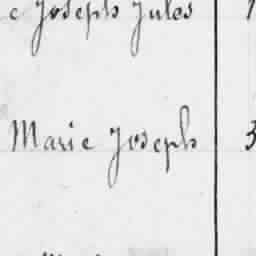 e Joseph Jules 1
Marie Joseph 3